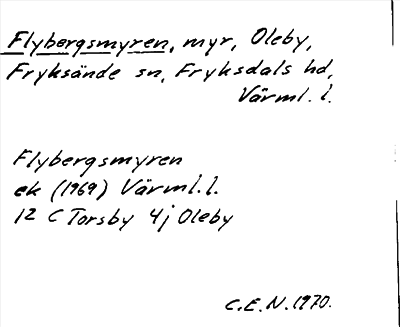 Flybergsmyren, myr, Oleby,
Fryksände sn, Fryksdals hd,
Värml. l.
Flybergsmyren
ek (1969) Värml. l.
12 C Torsby 4j Oleby
C.E.N. 1970.